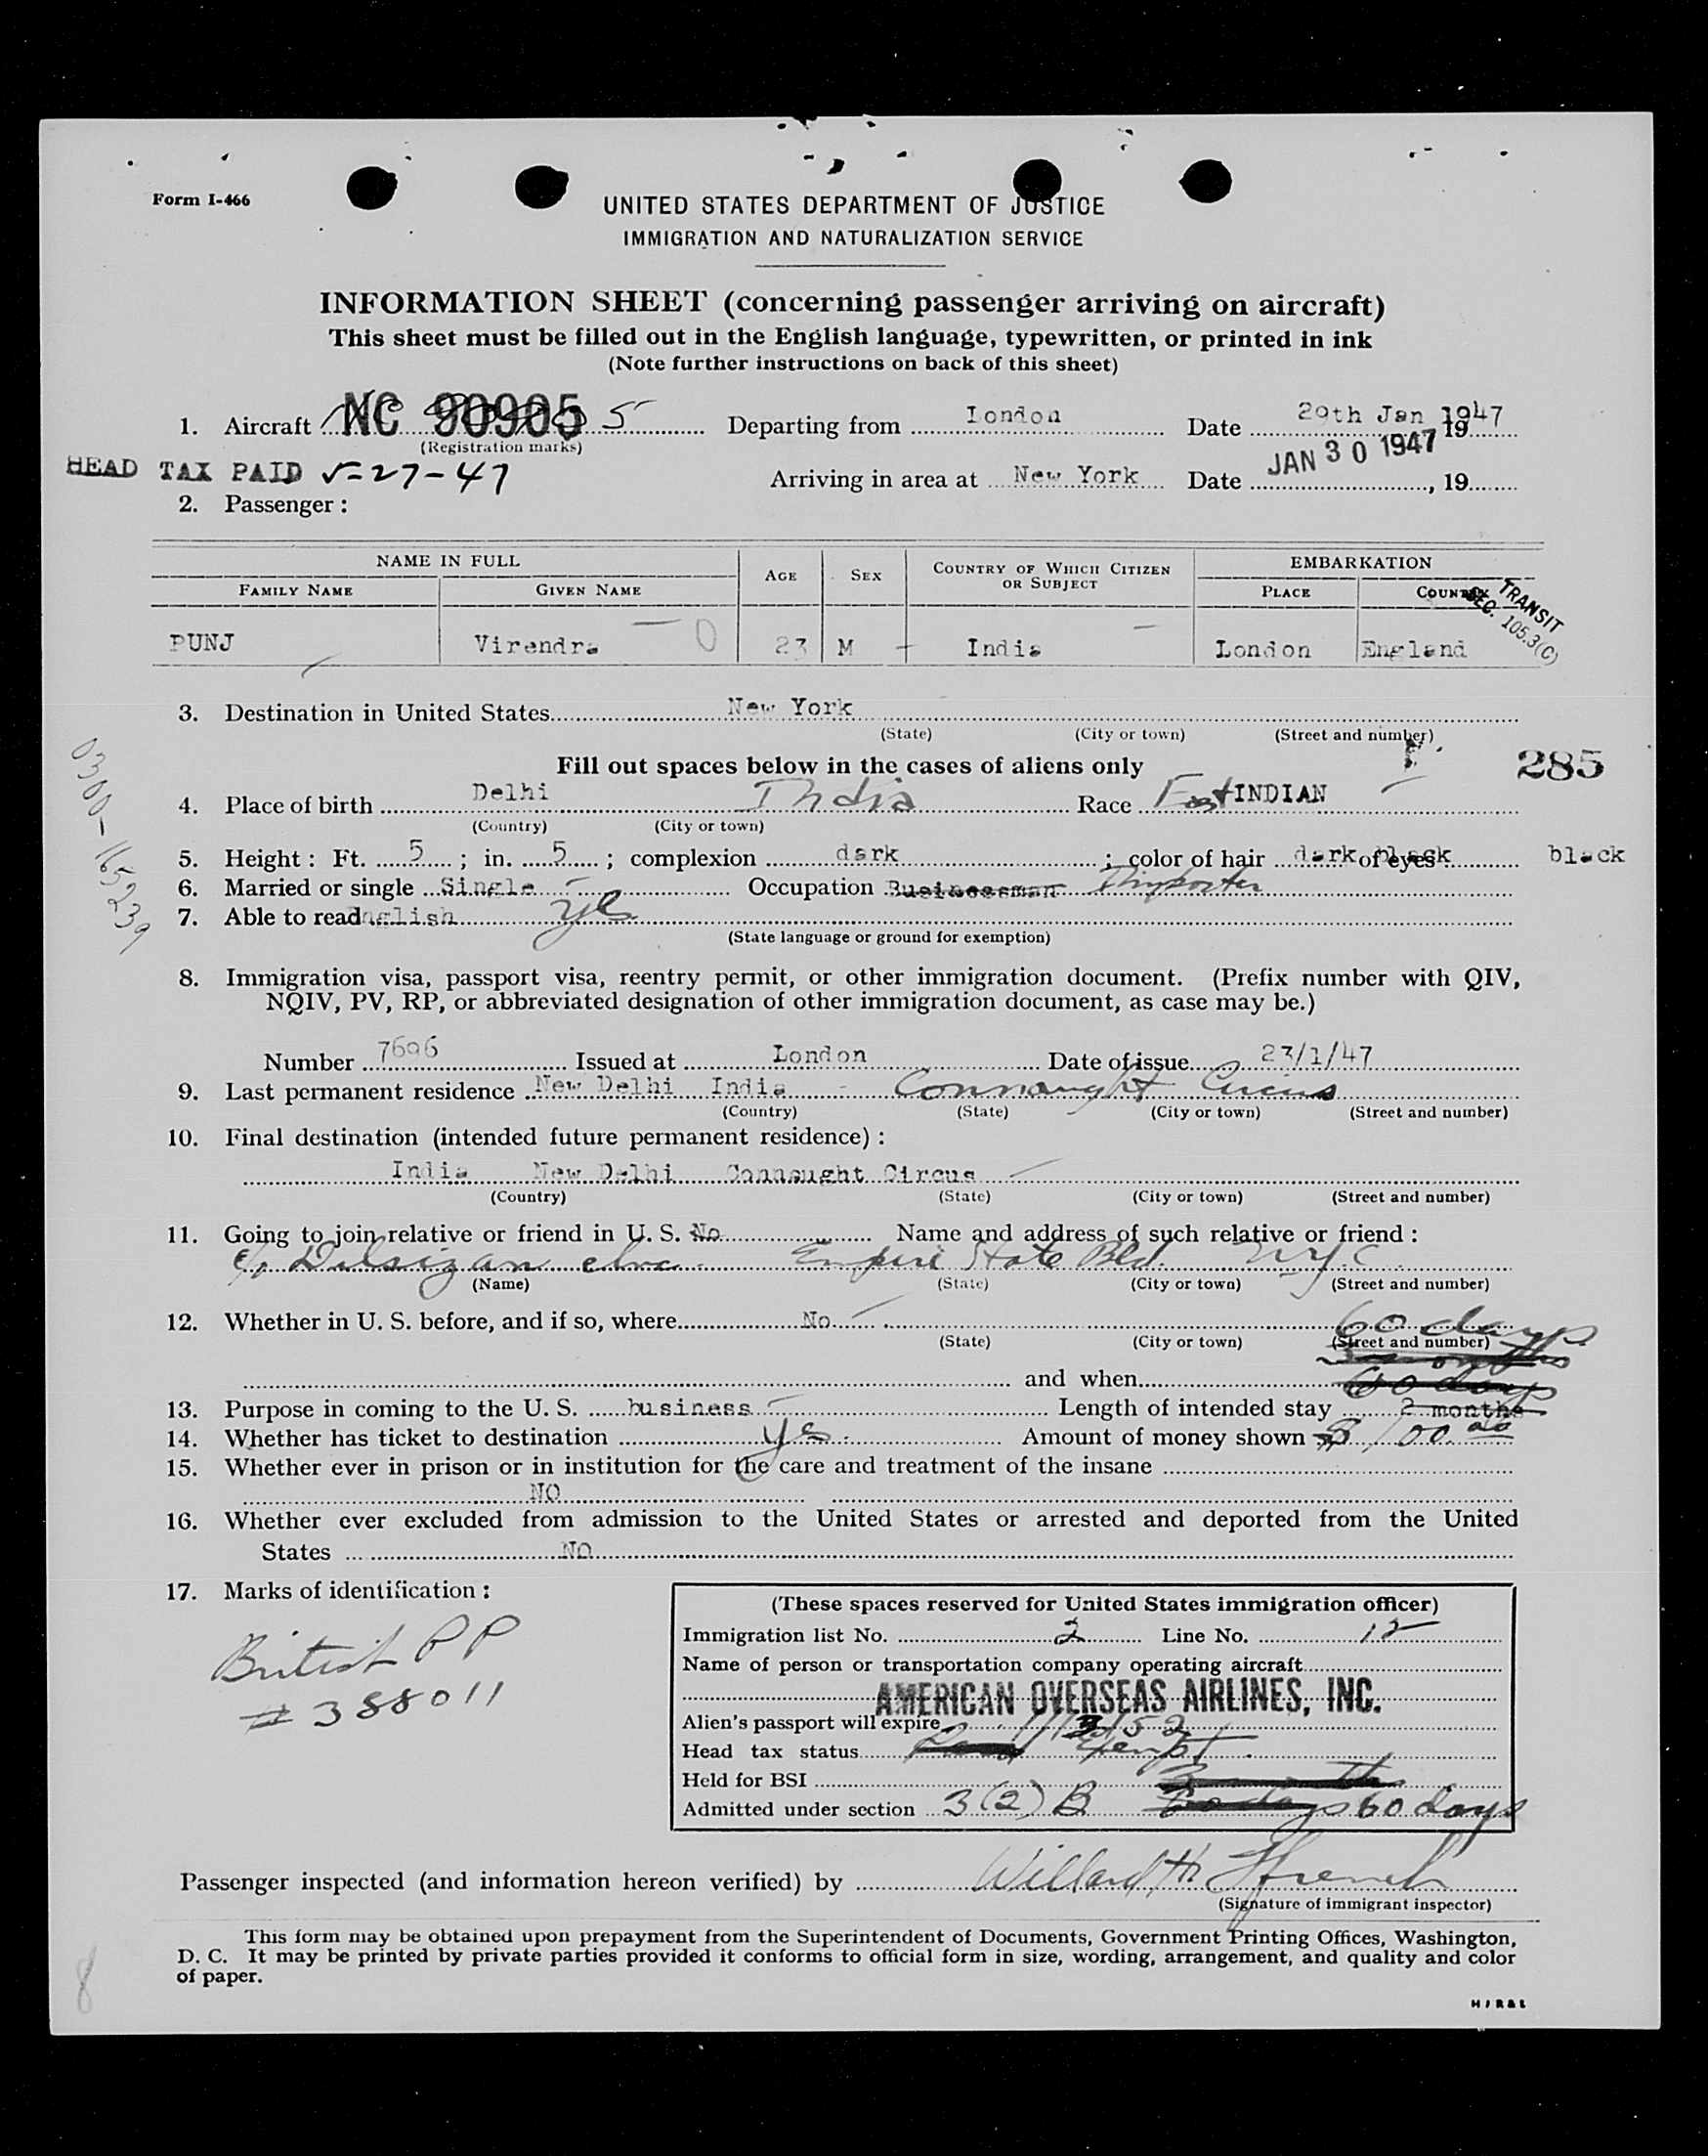 Form I-466
UNITED STATES DEPARTMENT OF JUSTICE
IMMIGRATION AND NATURALIZATION SERVICE
INFORMATION SHEET (concerning passenger arriving on aircraft)
This sheet must be filled out in the English language, typewritten, or printed in ink
(Note further instructions on back of this sheet)
1. Aircraft NC 90905 Departing from London Date 29th Jan 1947
(Registration marks)
HEAD TAX PAID Arriving in area at New York Date JAN 30 1947, 19
2. Passenger:
NAME IN FULL AGE SEX COUNTRY OF WHICH CITIZEN OR SUBJECT EMBARKATION
FAMILY NAME GIVEN NAME PLACE COUNTRY
TRANSIT
SEC. 105.3(C)
PUNJ Virendra 23 M India London England
3. Destination in United States New York
(State) (City or town) (Street and number)
285
Fill out spaces below in the cases of aliens only
4. Place of birth Delhi India Race East INDIAN
(Country) (City or town)
5. Height: Ft. 5; in. 5; complexion dark; color of hair dark of eyes black black
6. Married or single Single Occupation Businessman Importer
7. Able to read English yes
(State language or ground for exemption)
0300-165239
8. Immigration visa, passport visa, reentry permit, or other immigration document. (Prefix number with QIV,
NQIV, PV, RP, or abbreviated designation of other immigration document, as case may be.)
Number 7696 Issued at London Date of issue 23/1/47
9. Last permanent residence New Delhi India - Connaught Circus
(Country) (State) (City or town) (Street and number)
10. Final destination (intended future permanent residence):
India New Delhi Connaught Circus
(Country) (State) (City or town) (Street and number)
11. Going to join relative or friend in U. S. No Name and address of such relative or friend:
c/o Empire State Bld. N.Y.C.
(Name) (State) (City or town) (Street and number)
12. Whether in U. S. before, and if so, where No
(State) (City or town) (Street and number)
60 days
and when
60 days
13. Purpose in coming to the U. S. business Length of intended stay 2 months
14. Whether has ticket to destination yes Amount of money shown $100.00
15. Whether ever in prison or in institution for the care and treatment of the insane
NO
16. Whether ever excluded from admission to the United States or arrested and deported from the United
States NO
17. Marks of identification:
British PP
# 388011
(These spaces reserved for United States immigration officer)
Immigration list No. 2 Line No. 12
Name of person or transportation company operating aircraft
AMERICAN OVERSEAS AIRLINES, INC.
Alien's passport will expire
Head tax status Exempt
Held for BSI
Admitted under section 3(2) B 60 days
Passenger inspected (and information hereon verified) by Willard H. Ffrench
(Signature of immigrant inspector)
This form may be obtained upon prepayment from the Superintendent of Documents, Government Printing Offices, Washington,
D. C. It may be printed by private parties provided it conforms to official form in size, wording, arrangement, and quality and color
of paper.
8